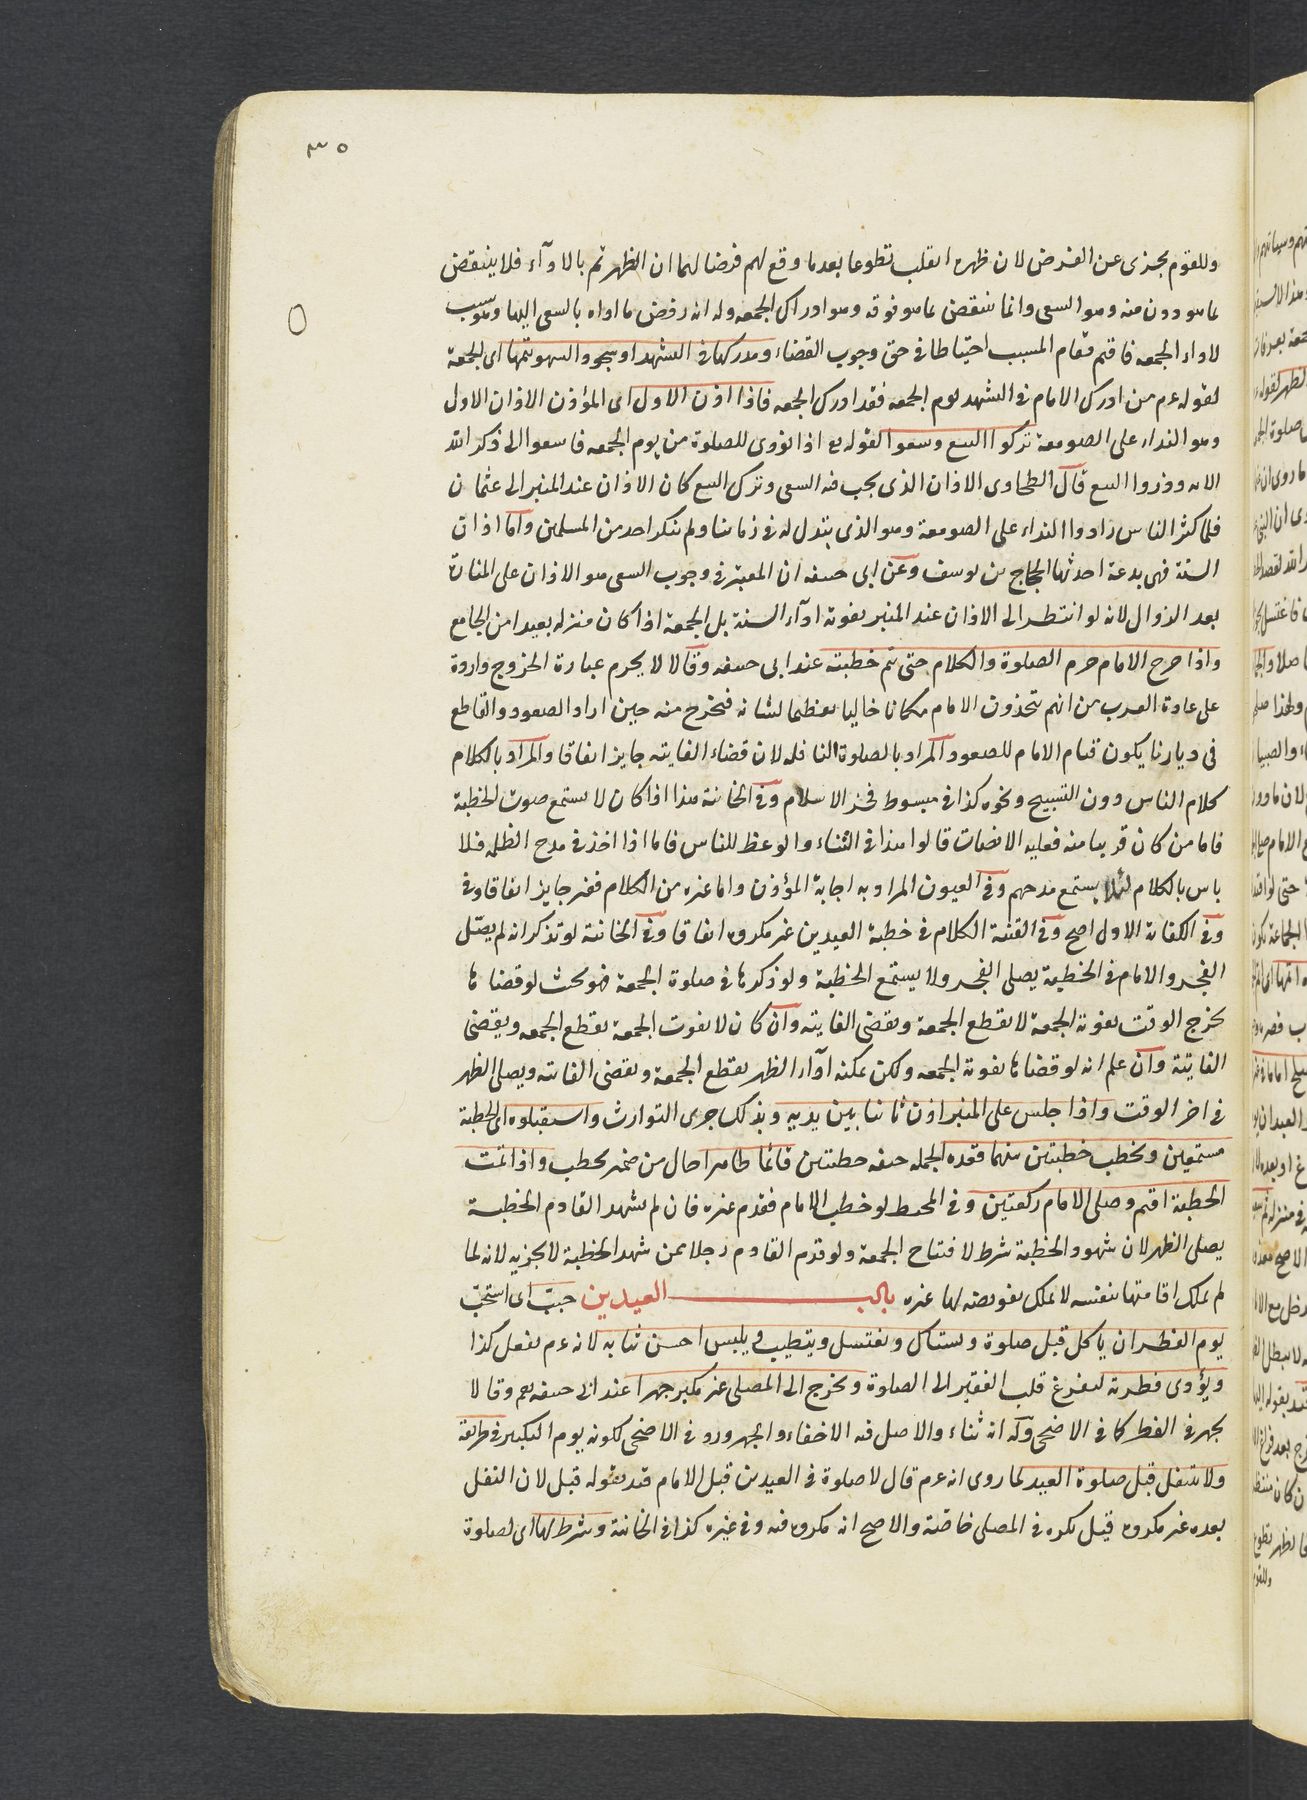 ٣٥
وللقوم يجزى عن الفرض لان ظهره انقلب تطوعا بعدما وقع لهم فرضا لهما ان الظهر تم بالادآء فلا ينتقض
بما هو دون منه وهو السعى وانما ينتقض بما هو فوقه وهو ادراك الجمعه وله انه رفض ما اداه بالسعى اليها وهو سبب
لاداء الجمعه فاقيم مقام المسبب احتياطا فى حق وجوب القضاء ومدركها فى التشهد او سجود السهو يتمها اى الجمعة
لقوله عم من ادرك الامام فى التشهد يوم الجمعه فقد ادرك الجمعه فاذا اذن الاول اى المؤذن الاذان الاول
وهو النداء على الصومعة تركوا البيع وسعوا لقوله تع اذا نودى للصلوة من يوم الجمعه فاسعوا الى ذكر الله
الايه وذروا البيع قال الطحاوى الاذان الذى يجب فيه السعى وترك البيع كان الاذان عند المنبر الى عثمان
فلما كثر الناس زادوا النداء على الصومعة وهو الذى يبتدل له فى زماننا ولم ينكر احد من المسلمين واما اذان
السنة فهى بدعة احدثها الحجاج بن يوسف وعن ابى حنيفه ان المعتبر فى وجوب السعى هو الاذان على المنارة
بعد الزوال لانه لو انتظر الى الاذان عند المنبر يفوته ادآء السنة بل الجمعة اذا كان منزله بعيدا من الجامع
واذا خرج الامام حرم الصلوة والكلام حتى يتم خطبته عند ابى حنيفه وقالا لا يحرم عبارة الخروج واردة
على عادة العرب من انهم يتخذون الامام مكانا خاليا تعظيما لشانه فيخرج منه حين اراد الصعود والقاطع
فى ديارنا يكون قيام الامام للصعود المراد بالصلوة النافله لان قضاء الفايته جايز اتفاقا والمراد بالكلام
كلام الناس دون التسبيح ونحوه كذا فى مبسوط فخر الاسلام وفى الخانية هذا اذا كان لا يستمع صوت الخطبة
فاما من كان قريبا منه فعليه الانصات قالوا هذا فى الثناء والوعظ للناس فاما اذا اخذ فى مدح الظلمه فلا
باس بالكلام لئلا يستمع مدحهم وفى العيون المراد به اجابة المؤذن واما غيره من الكلام فغير جايز اتفاقا وفى
وفى الكفاية الاول اصح وفى القنية الكلام فى خطبة العيدين غير مكروه اتفاقا وفى الخانية لو تذكر انه لم يصل
الفجر والامام فى الخطبة يصلى الفجر ولا يستمع الخطبة ولو ذكرها فى صلوة الجمعة فهو بحيث لو قضاها
يخرج الوقت بفوته الجمعة لا يقطع الجمعة ويقضى الفايته وان كان لا يفوت الجمعة يقطع الجمعه ويقضى
الفايتة وان علم انه لو قضاها يفوته الجمعه ولكن يمكنه ادآء الظهر يقطع الجمعة ويقضى الفايته ويصلى الظهر
فى اخر الوقت واذا جلس على المنبر اذن ثانيا بين يديه وبذلك جرى التوارث واستقبلوه اى الخطبة
مستمعين ويخطب خطبتين بينهما قعده الجمله صفه خطبتين قائما طاهرا حال من ضمير يخطب واذا تمت
الخطبة اقيم وصلى الامام ركعتين وفى المحيط لو خطب الامام فقدم غيره فان لم يشهد القادم الخطبة
يصلى الظهر لان شهود الخطبة شرط لافتتاح الجمعة ولو قدم القادم رجلا ممن شهد الخطبة لا يجزيه لانه لما
لم يملك اقامتها بنفسه لا يملك تفويضه لها غيره باب العيدين حبب اى استحب
يوم الفطر ان ياكل قبل صلوة ويستاك ويغتسل ويتطيب ويلبس احسن ثيابه لانه عم يفعل كذا
ويؤدى فطرته ليفرغ قلب الفقير الى الصلوة ويخرج الى المصلى غير مكبر جهرا عند ابى حنيفه رحم وقالا
يجهر فى الفطر كما فى الاضحى وله انه ثناء والاصل فيه الاخفاء والجهر ورد فى الاضحى لكونه يوم التكبير فى طريقه
ولا يتنفل قبل صلوة العيد لما روى انه عم قال لا صلوة فى العيدين قبل الامام قيد بقوله قبل لان النفل
بعده غير مكروه قيل يكره فى المصلى خاصة والاصح انه مكروه فيه وفى غيره كذا فى الخانية وشرط لها اى لصلوة